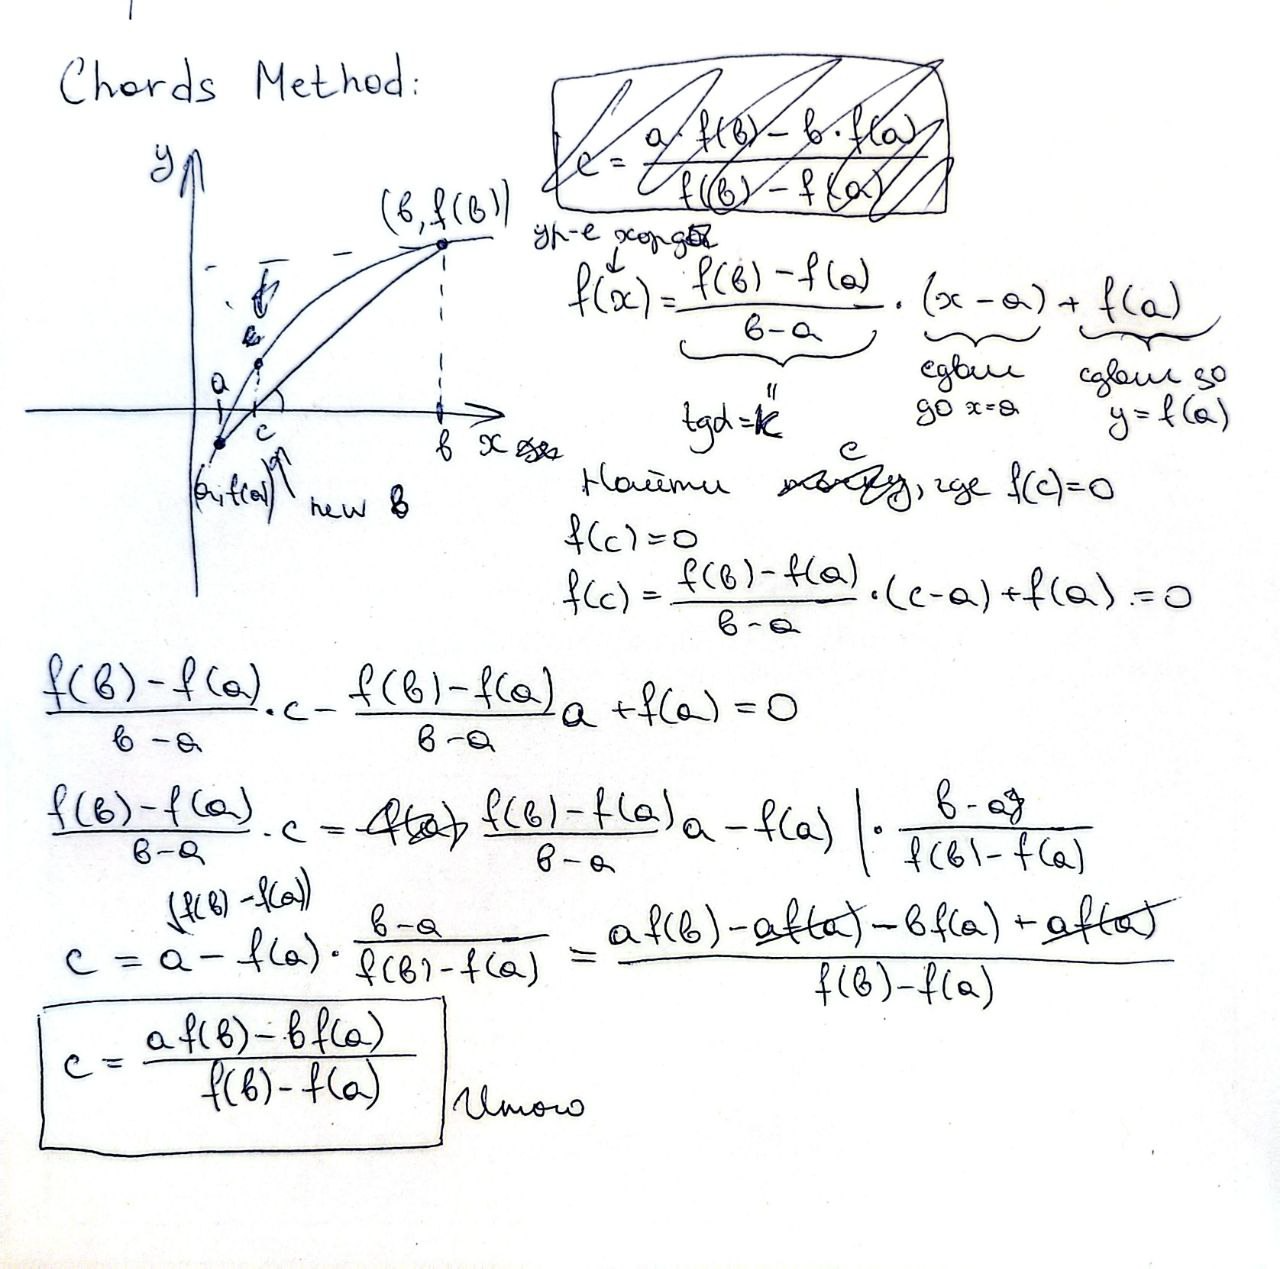 Chords Method:
y
(b, f(b))
a
c
b x
(a, f(a))
new b
c = (a · f(b) − b · f(a)) / (f(b) − f(a))
ур-е хорды
f(x) = (f(b) − f(a)) / (b − a) · (x − a) + f(a)
tgα = k
сдвиг
до x=a
сдвиг до
y = f(a)
Найти c, где f(c)=0
f(c)=0
f(c) = (f(b) − f(a)) / (b − a) · (c−a) + f(a) = 0
(f(b) − f(a)) / (b − a) · c − (f(b) − f(a)) / (b − a) a + f(a) = 0
(f(b) − f(a)) / (b − a) · c = (f(b) − f(a)) / (b − a) a − f(a) | · (b − a) / (f(b) − f(a))
(f(b) − f(a))
c = a − f(a) · (b − a) / (f(b) − f(a)) = (af(b) − af(a) − bf(a) + af(a)) / (f(b) − f(a))
c = (af(b) − bf(a)) / (f(b) − f(a))
Итого